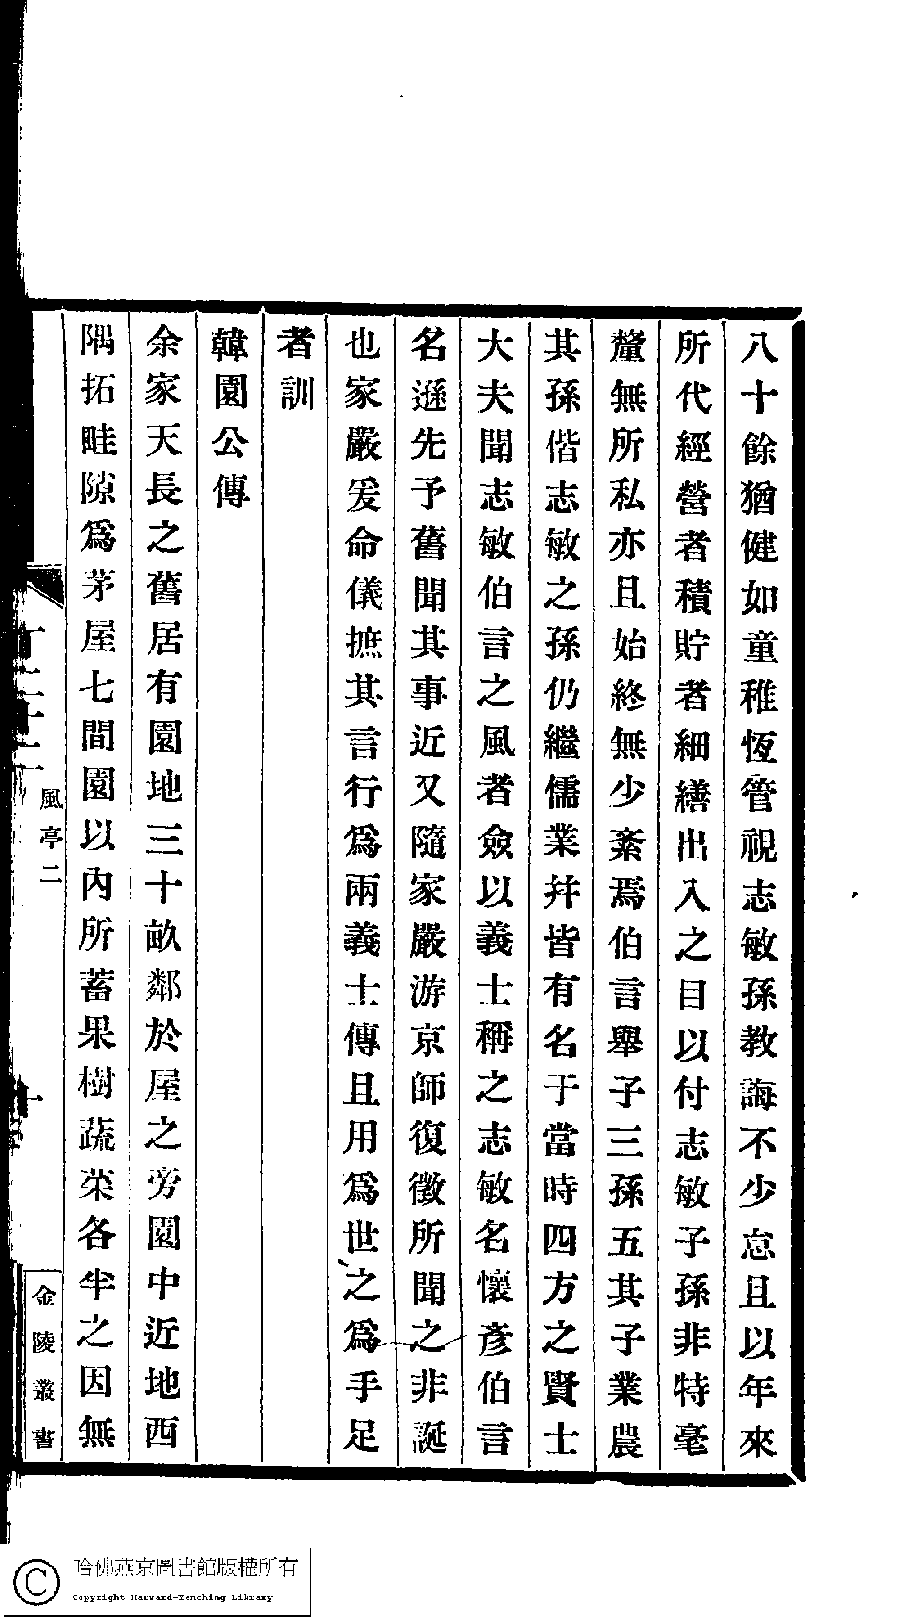 八十餘猶健如童稚恆管視志敏孫教誨不少怠且以年來
所代經營者積貯者細繕出入之目以付志敏子孫非特毫
釐無所私亦且始終無少紊焉伯言舉子三孫五其子業農
其孫偕志敏之孫仍繼儒業幷皆有名于當時四方之賢士
大夫聞志敏伯言之風者僉以義士稱之志敏名懷彥伯言
名遜先予舊聞其事近又隨家嚴游京師復徵所聞之非誕
也家嚴爰命儀摭其言行爲兩義士傳且用爲世之爲手足
者訓
韓園公傳
余家天長之舊居有園地三十畝鄰於屋之旁園中近地西
隅拓畦隙爲茅屋七間園以內所蓄果樹蔬菜各半之因無
風亭二
十
金陵叢書
哈佛燕京圖書館版權所有
Copyright Harvard-Yenching Library